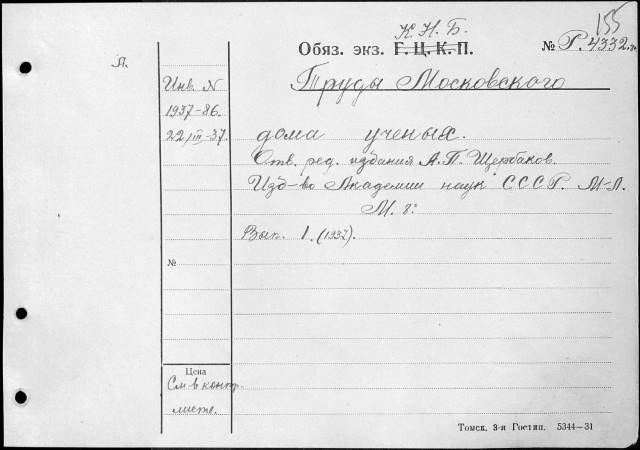 155
К. Н. Б.
Обяз. экз. Г. Ц. К. П. № Р. 4332
Л.
Инв. N
1937-86.
22/III-37.
Труды Московского
дома ученых.
Отв. ред. издания А. П. Щербаков.
Изд-во Академии наук СССР. М-Л.
М. 8:
Вып. 1. (1937).
№
Цена
См в контр.
листе.
Томск. 3-я Гостип. 5344—31